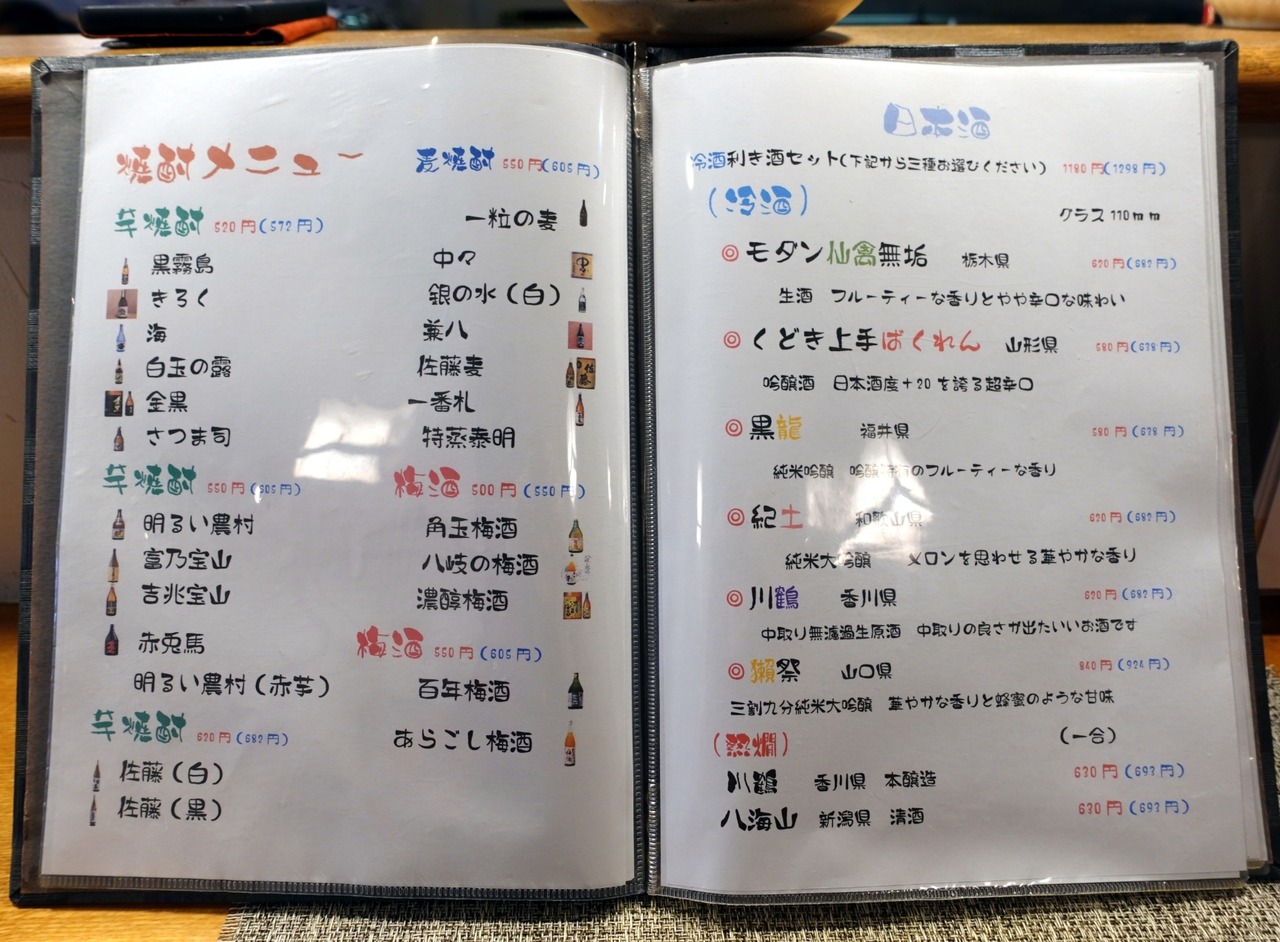 焼酎メニュー
芋焼酎 520円(572円)
黒霧島
きろく
海
白玉の露
金黒
さつま司
芋焼酎 550円(605円)
明るい農村
富乃宝山
吉兆宝山
赤兎馬
明るい農村(赤芋)
芋焼酎 620円(682円)
佐藤(白)
佐藤(黒)
麦焼酎 550円(605円)
一粒の麦
中々
銀の水(白)
兼八
佐藤麦
一番札
特蒸泰明
梅酒 500円(550円)
角玉梅酒
八岐の梅酒
濃醇梅酒
梅酒 550円(605円)
百年梅酒
あらごし梅酒
日本酒
冷酒利き酒セット(下記から三種お選びください) 1180円(1298円)
(冷酒)
グラス110mm
◎モダン仙禽無垢 栃木県 620円(682円)
生酒 フルーティーな香りとやや辛口な味わい
◎くどき上手ばくれん 山形県 580円(638円)
吟醸酒 日本酒度+20を誇る超辛口
◎黒龍 福井県 580円(638円)
純米吟醸 吟醸 のフルーティーな香り
◎紀土 和歌山県 620円(682円)
純米大吟醸 メロンを思わせる華やかな香り
◎川鶴 香川県 620円(682円)
中取り無濾過生原酒 中取りの良さが出たいいお酒です
◎獺祭 山口県 840円(924円)
三割九分純米大吟醸 華やかな香りと蜂蜜のような甘味
(熱燗)
(一合)
川鶴 香川県 本醸造 630円(693円)
八海山 新潟県 清酒 630円(693円)